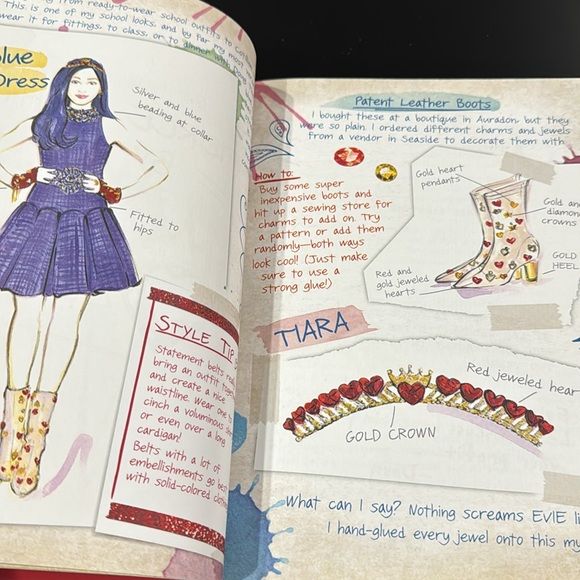 from ready-to-wear school outfits to
This is one of my school looks, and by far my most
wear it for fittings, to class, or to dinner with
Blue
Dress
Silver and blue
beading at collar
Fitted to
hips
STYLE TIP
Statement belts
bring an outfit
and create a nice
waistline. Wear one
cinch a voluminous
or even over a long
cardigan!
Belts with a lot of
embellishments go best
with solid-colored
Patent Leather Boots
I bought these at a boutique in Auradon, but they
were so plain. I ordered different charms and jewels
from a vendor in Seaside to decorate them with.
How to:
Buy some super
inexpensive boots and
hit up a sewing store for
charms to add on. Try
a pattern or add them
randomly—both ways
look cool! (Just make
sure to use a
strong glue!)
Gold heart
pendants
Gold and
diamond
crowns
GOLD
HEEL
Red and
gold jeweled
hearts
TIARA
Red jeweled hear
GOLD CROWN
What can I say? Nothing screams EVIE li
I hand-glued every jewel onto this my